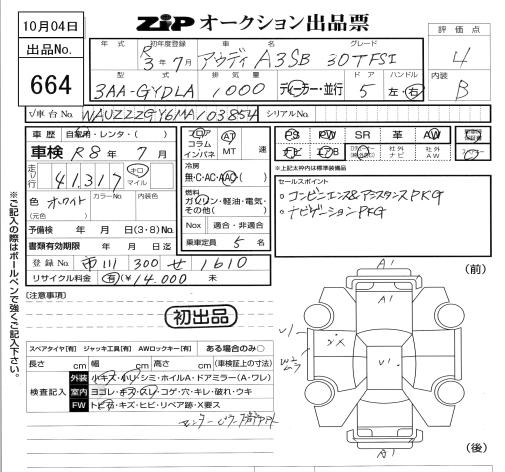 10月04日
ZIPオークション出品票
評価点
4
内装
B
出品No.
664
年式 初年度登録 車名 グレード
R3年7月 アウディ A3SB 30TFSI
型式 排気量 ドア ハンドル
3AA-GYDLA 1,000 ディーカー・並行 5 左・右
√車台No. WAUZZZGY6MA103854 シリアルNo.
車歴 自家用・レンタ・( )
車検 R8年7月
走行 41,317 キロ マイル
色 ホワイト カラーNo. 内装色
(元色)
予備検 年 月 日(3・8)No.
書類有効期限 年 月 日迄
登録No. 市川 300 せ 1610
リサイクル料金 有(¥14,000 未
フロア コラム インパネ
AT MT 速
冷房
無・C・AC・AAC( )
燃料
ガソリン・軽油・電気・その他( )
Nox 適合・非適合
乗車定員 5 名
PS PW SR 革 AW
ナビ エアB 社外ナビ 社外AW
*上記太枠内は標準装備品
セールスポイント
○コンビニエンス&アシスタンスPKG
○ナビゲーションPKG
(注意事項)
初出品
スペアタイヤ[有] ジャッキ工具[有] AWロックキー[有] ある場合のみ○
長さ cm 幅 cm 高さ cm (車検証上の寸法)
検査記入
外装 小キズ・小リ・シミ・ホイルA・ドアミラー(A・ワレ)
室内 ヨゴレ・キズ・スレ・コゲ・穴・キレ・破れ・ウキ
FW トビ石・キズ・ヒビ・リペア跡・X要ス
(前)
A1
A1
U1
X
U1
A1
(後)
※ご記入の際はボールペンで強くご記入下さい。